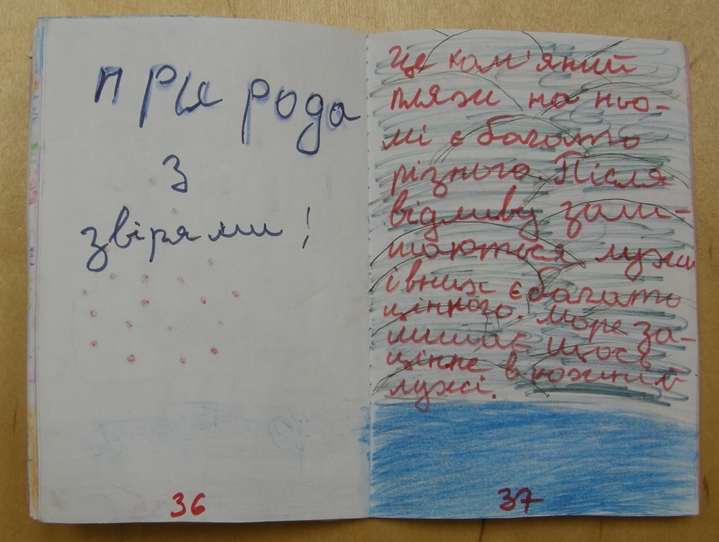 природа
з
звірями!
36
Це кам'яний
пляж на ньо-
мі є багато
різного. Після
відливу зали-
шаються лужи
і вних є багато
цінного. море за-
лишає щось
цінне в кожній
лужі.
37